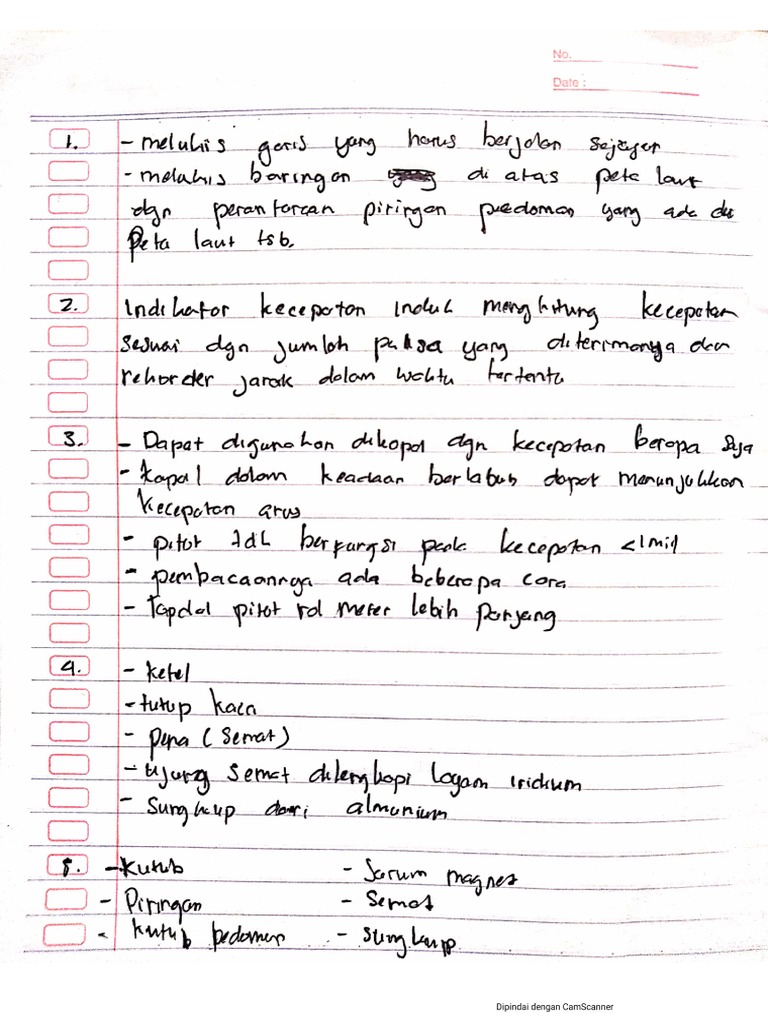 No.
Date :
1. - melukis garis yang harus berjalan sejajar
- melukis baringan di atas peta laut
dgn perantaraan piringan puedoman yang ada di
Peta laut tsb.
2. Indikator kecepatan induk menghitung kecepatan
sesuai dgn jumlah pulsa yang diterimanya dan
rekorder jarak dalam waktu tertentu
3. - Dapat digunakan dikapal dgn kecepatan berapa saja
- Kapal dalam keadaan berlabuh dapat menunjukkan
kecepatan arus
- pitot berfungsi pada kecepatan <1mil
- pembacaannya ada beberapa cara
- Topdal pitot rol meter lebih panjang
4. - ketel
- tutup kaca
- pena (semat)
- ujung semat dilengkapi logam iridium
- Sungkup dari almunium
5. - Kutub - Jarum magnet
- Piringan - Semat
- kutub pedoman - sungkup
Dipindai dengan CamScanner